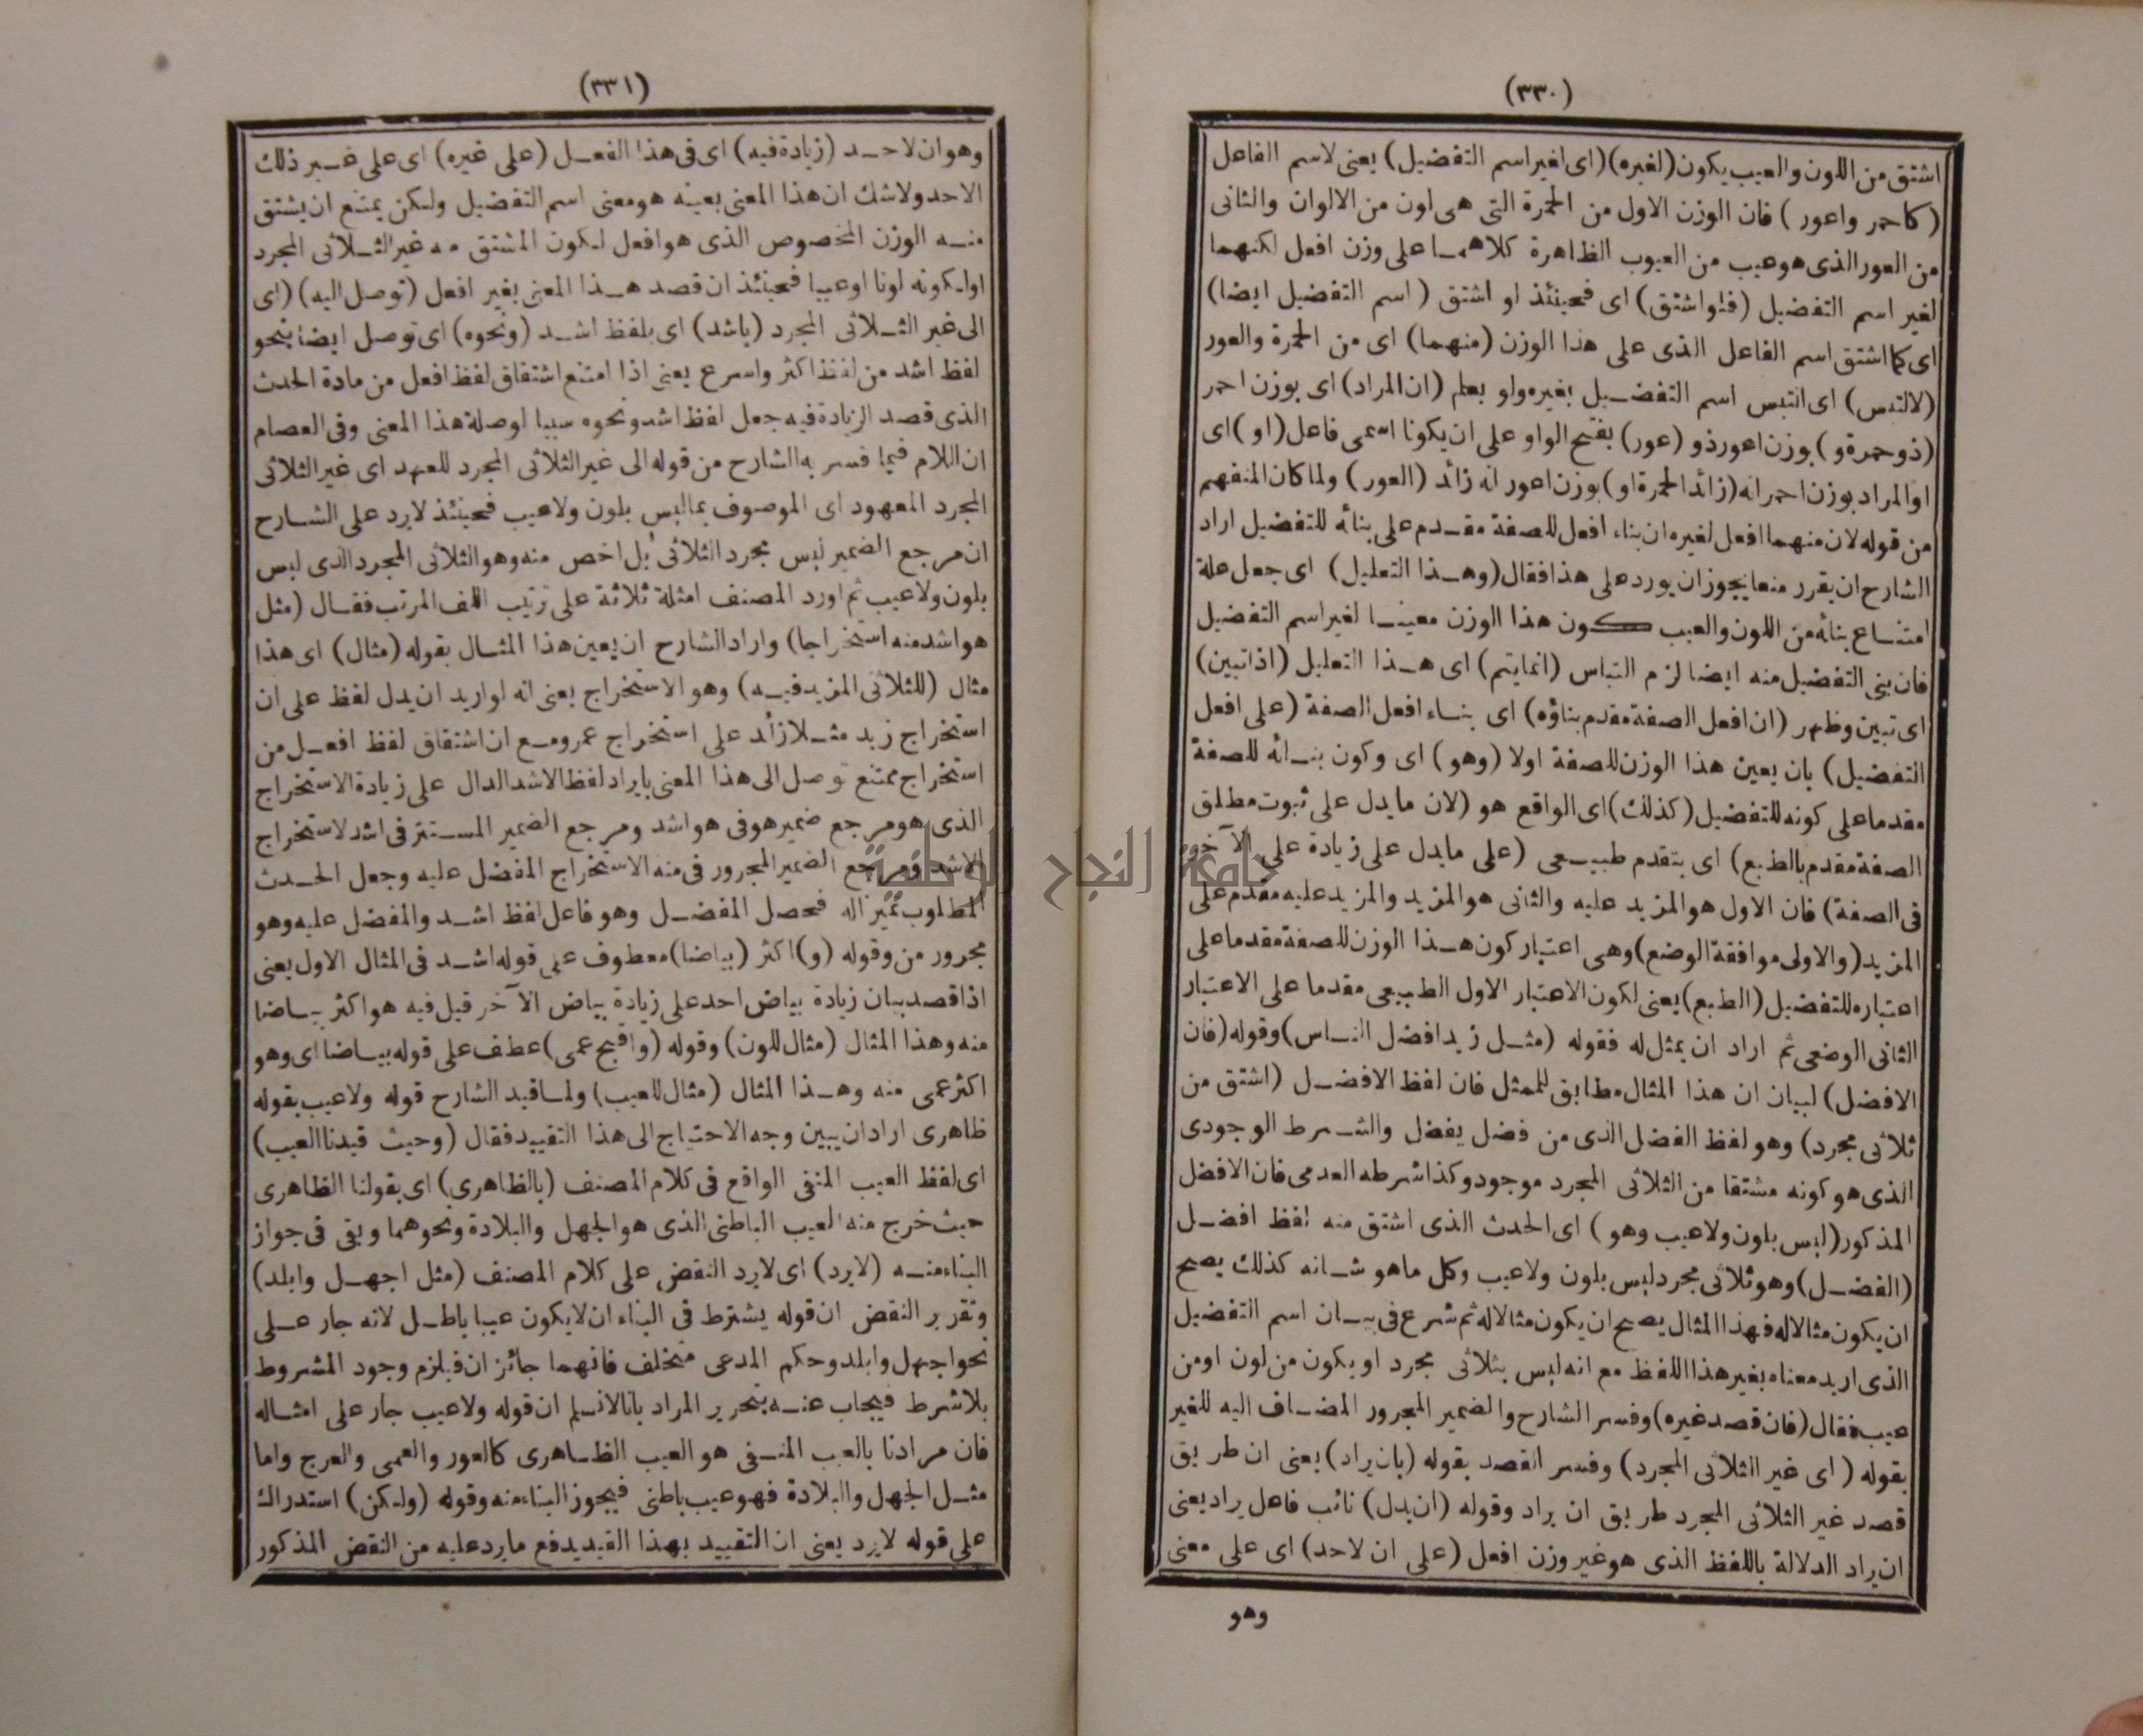 (٣٣٠)
اشتق من اللون والعيب يكون (لغيره) (اى لغير اسم التفضيل) يعنى لاسم الفاعل
(كاحمر واعور) فان الوزن الاول من الحمرة التى هى لون من الالوان والثانى
من العور الذى هو عيب من العيوب الظاهرة كلاهما على وزن افعل لكنهما
لغير اسم التفضيل (فلو اشتق) اى فحينئذ لو اشتق (اسم التفضيل ايضا)
اى كما اشتق اسم الفاعل الذى على هذا الوزن (منهما) اى من الحمرة والعور
(لالتبس) اى التبس اسم التفضيل بغيره ولو يعلم (ان المراد) اى بوزن احمر
(ذو حمرة و) بوزن اعور ذو (عور) بفتح الواو على ان يكونا اسمى فاعل (او) اى
او المراد بوزن احمر انه (زائد الحمرة او) بوزن اعور انه زائد (العور) ولما كان المنفهم
من قوله لان منهما افعل لغيره ان بناء افعل للصفة مقدم على بنائه للتفضيل اراد
الشارح ان يقرر منعا يجوز ان يورد على هذا فقال (وهذا التعليل) اى جعل علة
امتناع بنائه من اللون والعيب كون هذا الوزن معينا لغير اسم التفضيل
فان بنى التفضيل منه ايضا لزم التباس (انما يتم) اى هذا التعليل (اذا تبين)
اى تبين وظهر (ان افعل الصفة مقدم بناؤه) اى بناء افعل الصفة (على افعل
التفضيل) بان يعين هذا الوزن للصفة اولا (وهو) اى وكون بنائه للصفة
مقدما على كونه للتفضيل (كذلك) اى الواقع هو (لان ما يدل على ثبوت مطلق
الصفة مقدم بالطبع) اى بتقدم طبيعى (على ما يدل على زيادة على الآخر
فى الصفة) فان الاول هو المزيد عليه والثانى هو المزيد والمزيد عليه مقدم على
المزيد (والاولى موافقة الوضع) وهى اعتبار كون هذا الوزن للصفة مقدما على
اعتباره للتفضيل (الطبع) يعنى لكون الاعتبار الاول الطبيعى مقدما على الاعتبار
الثانى الوضعى ثم اراد ان يمثل له فقوله (مثل زيد افضل الناس) وقوله (فان
الافضل) لبيان ان هذا المثال مطابق للممثل فان لفظ الافضل (اشتق من
ثلاثى مجرد) وهو لفظ الفضل الذى من فضل يفضل والشرط الوجودى
الذى هو كونه مشتقا من الثلاثى المجرد موجود وكذا شرطه العدمى فان الافضل
المذكور (ليس بلون ولا عيب وهو) اى الحدث الذى اشتق منه لفظ افضل
(الفضل) وهو ثلاثى مجرد ليس بلون ولا عيب وكل ما هو شانه كذلك يصح
ان يكون مثالا له فهذا المثال يصح ان يكون مثالا له ثم شرع فى بيان اسم التفضيل
الذى اريد معناه بغير هذا اللفظ مع انه ليس بثلاثى مجرد او يكون من لون او من
عيب فقال (فان قصد غيره) وفسر الشارح والضمير المجرور المضاف اليه للغير
بقوله (اى غير الثلاثى المجرد) وفسر القصد بقوله (بان يراد) يعنى ان طريق
قصد غير الثلاثى المجرد طريق ان يراد وقوله (ان يدل) نائب فاعل يراد يعنى
ان يراد الدلالة باللفظ الذى هو غير وزن افعل (على ان لاحد) اى على معنى
وهو
(٣٣١)
وهو ان لاحد (زيادة فيه) اى فى هذا الفعل (على غيره) اى على غير ذلك
الاحد ولا شك ان هذا المعنى بعينه هو معنى اسم التفضيل ولكن يمتنع ان يشتق
منه الوزن المخصوص الذى هو افعل لكون المشتق منه غير الثلاثى المجرد
او لكونه لونا او عيبا فحينئذ ان قصد هذا المعنى بغير افعل (توصل اليه) (اى
الى غير الثلاثى المجرد (باشد) اى بلفظ اشد (ونحوه) اى توصل ايضا بنحو
لفظ اشد من لفظ اكثر واسرع يعنى اذا امتنع اشتقاق لفظ افعل من مادة الحدث
الذى قصد الزيادة فيه جعل لفظ اشد ونحوه سببا لوصلة هذا المعنى وفى العصام
ان اللام فيما فسر به الشارح من قوله الى غير الثلاثى المجرد للعهد اى غير الثلاثى
المجرد المعهود اى الموصوف بما ليس بلون ولا عيب فحينئذ لا يرد على الشارح
ان مرجع الضمير ليس مجرد الثلاثى بل اخص منه وهو الثلاثى المجرد الذى ليس
بلون ولا عيب ثم اورد المصنف امثلة ثلاثة على ترتيب اللف المرتب فقال (مثل
هو اشد منه استخراجا) واراد الشارح ان يعين هذا المثال بقوله (مثال) اى هذا
مثال (للثلاثى المزيد فيه) وهو الاستخراج يعنى انه لو اريد ان يدل لفظ على ان
استخراج زيد مثلا زائد على استخراج عمرو ومع ان اشتقاق لفظ افعل من
استخراج ممتنع توصل الى هذا المعنى بايراد لفظ الاشد الدال على زيادة الاستخراج
الذى هو مرجع ضمير هو فى هو اشد ومرجع الضمير المستتر فى اشد لاستخراج
الاشد ومرجع الضمير المجرور فى منه الاستخراج المفضل عليه وجعل الحدث
المطلوب تمييزا له فحصل المفضل وهو فاعل لفظ اشد والمفضل عليه وهو
مجرور من وقوله (و) اكثر (بياضا) معطوف على قوله اشد فى المثال الاول يعنى
اذا قصد بيان زيادة بياض احد على زيادة بياض الآخر قيل فيه هو اكثر بياضا
منه وهذا المثال (مثال للون) وقوله (واقبح عمى) عطف على قوله بياضا اى وهو
اكثر عمى منه وهذا المثال (مثال للعيب) ولما قيد الشارح قوله ولا عيب بقوله
ظاهرى اراد ان يبين وجه الاحتياج الى هذا التقييد فقال (وحيث قيدنا العيب)
اى لفظ العيب المنفى الواقع فى كلام المصنف (بالظاهرى) اى بقولنا الظاهرى
حيث خرج منه العيب الباطنى الذى هو الجهل والبلادة ونحوهما وبقى فى جواز
البناء منه (لا يرد) اى لا يرد النقض على كلام المصنف (مثل اجهل وابلد)
وتقرير النقض ان قوله يشترط فى البناء ان لا يكون عيبا باطل لانه جار على
نحو اجهل وابلد وحكم المدعى متخلف فانهما جائزان فيلزم وجود المشروط
بلا شرط فيجاب عنه بتحرير المراد بانا لا نسلم ان قوله ولا عيب جار على امثاله
فان مرادنا بالعيب المنفى هو العيب الظاهرى كالعور والعمى والعرج واما
مثل الجهل والبلادة فهو عيب باطنى فيجوز البناء منه وقوله (ولكن) استدراك
على قوله لا يرد يعنى ان التقييد بهذا القيد يدفع ما يرد عليه من النقض المذكور
جامعة النجاح الوطنية